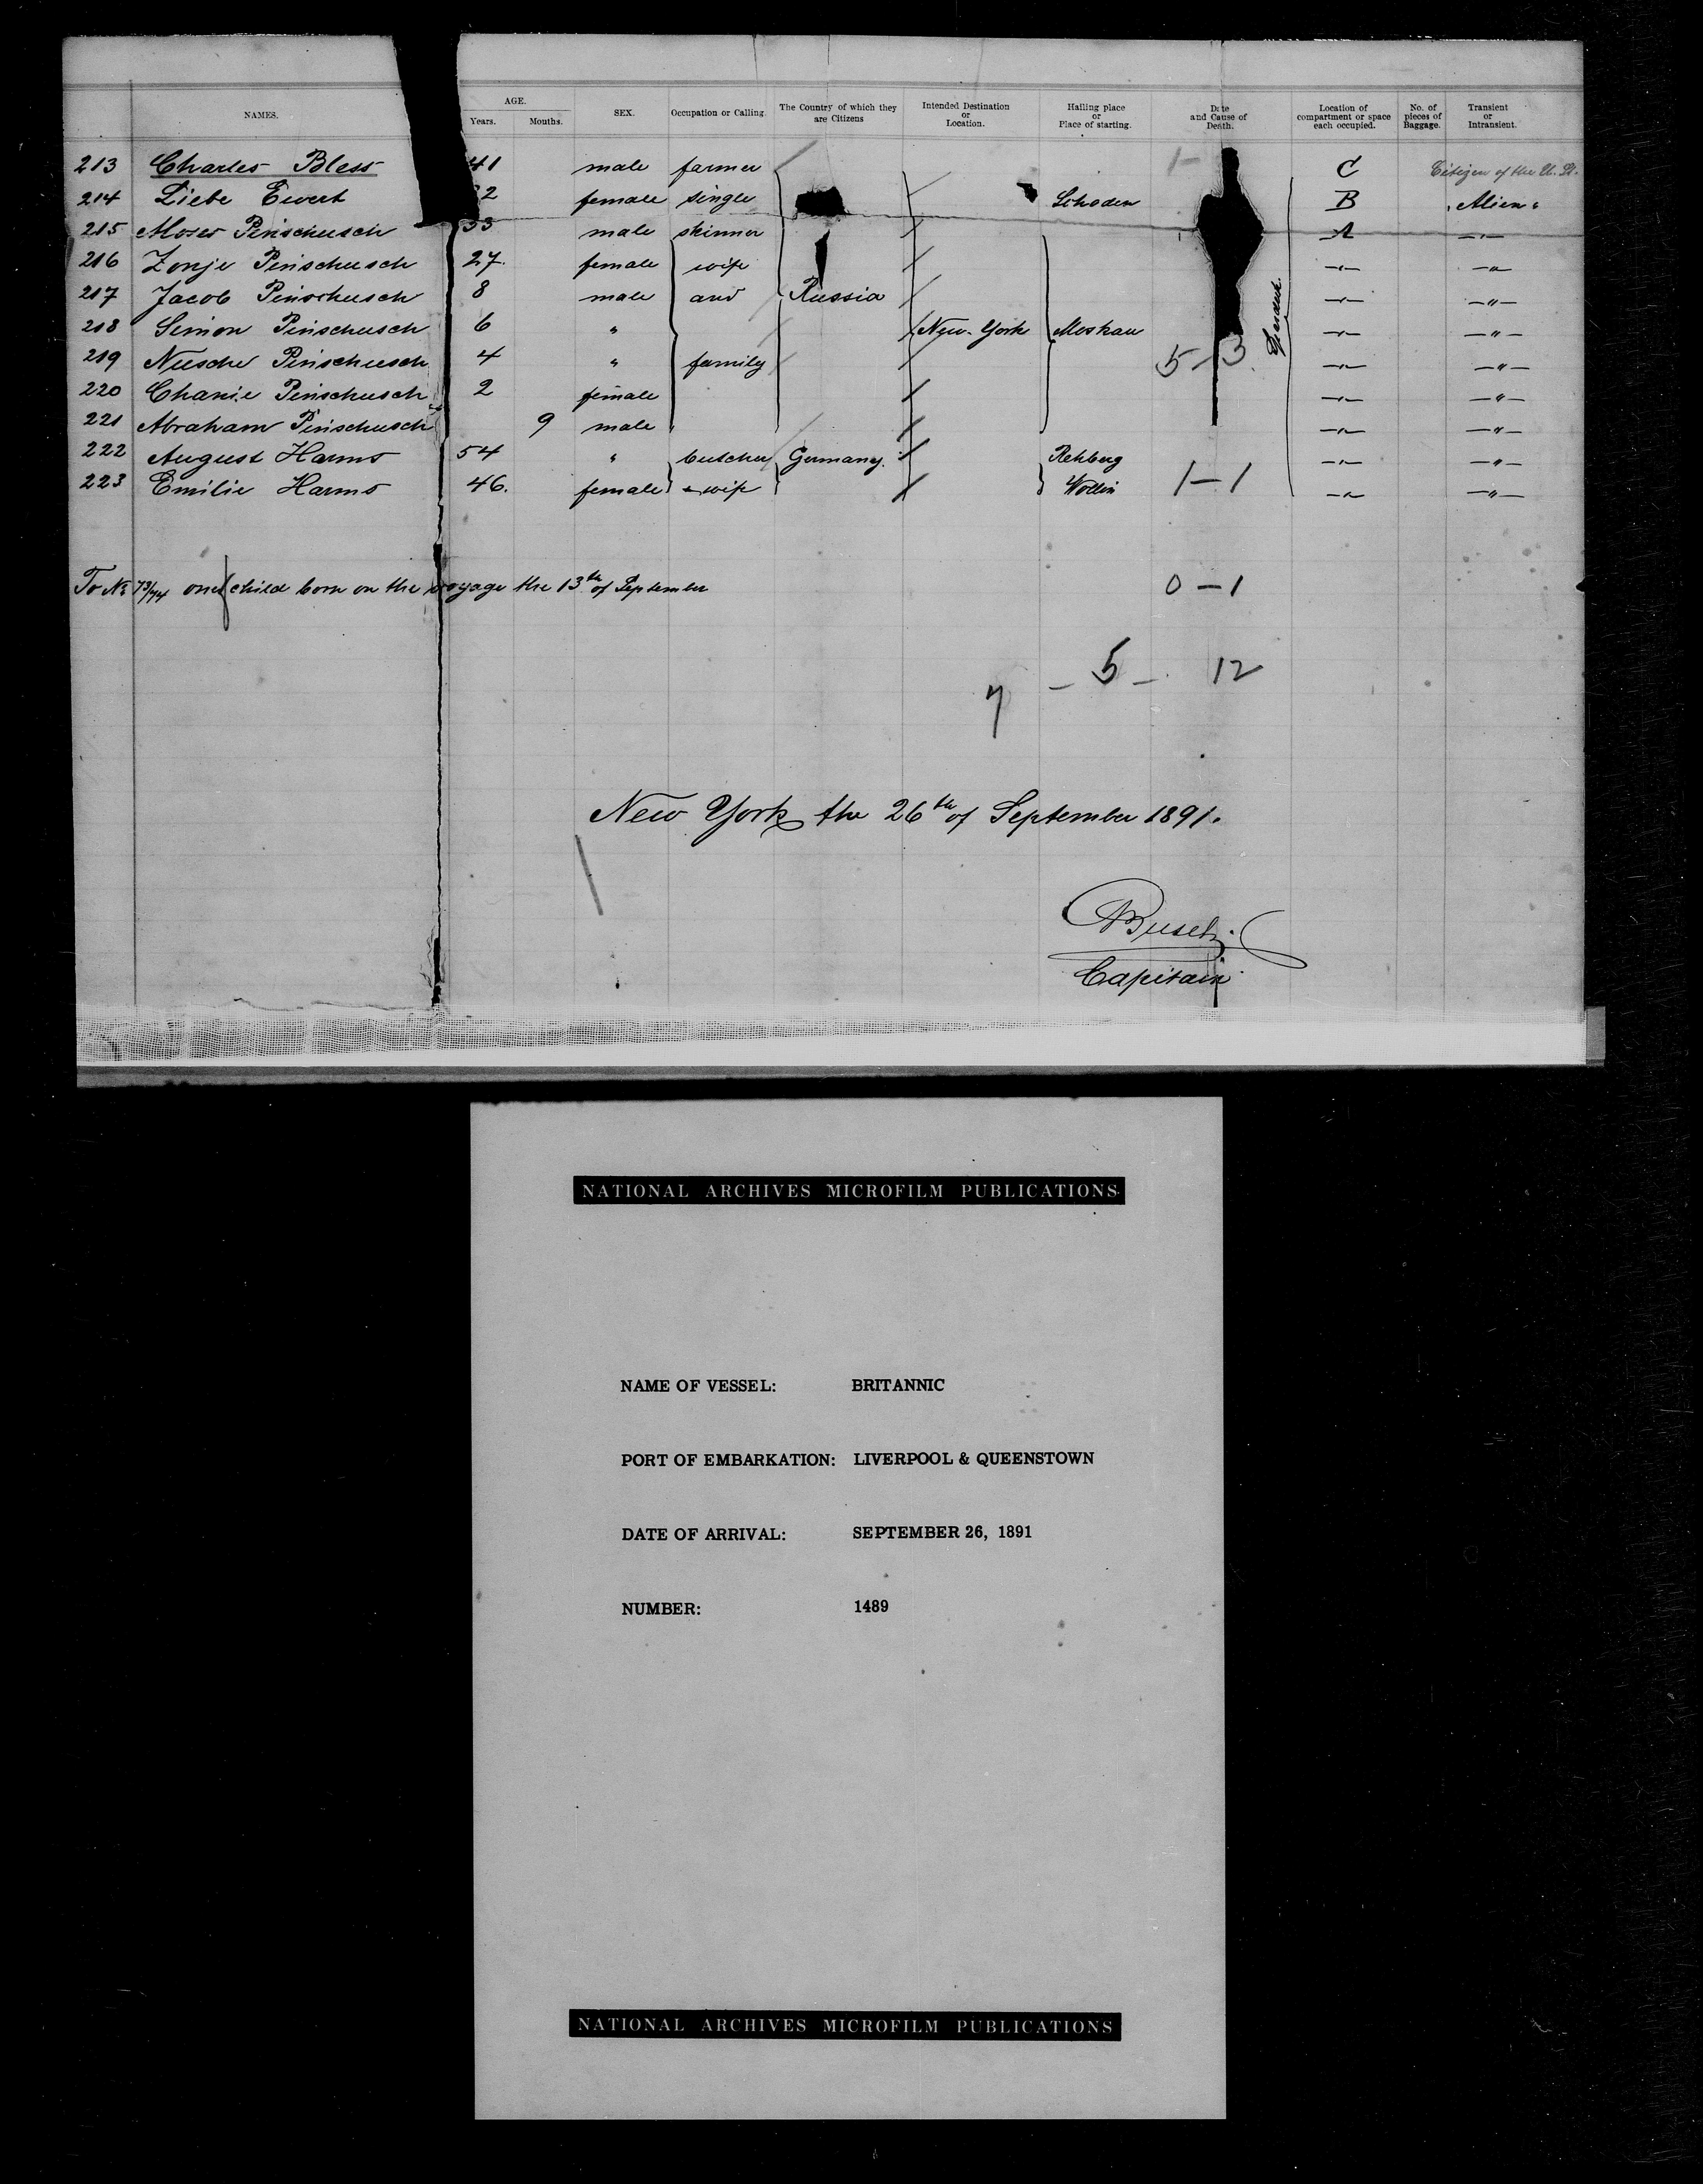 NAMES. AGE. Years. Months. SEX. Occupation or Calling. The Country of which they are Citizens Intended Destination or Location. Hailing place or Place of starting. Date and Cause of Death. Location of compartment or space each occupied. No. of pieces of Baggage. Transient or Intransient.
213 Charles Bless 41 male farmer 1- C Citizen of the U. St.
214 Liebe Ewert 2 female single Schoden B "Alien"
215 Moses Pinschusch 33 male skinner A -"-
216 Zonje Pinschusch 27. female wife -"- -"-
217 Jacob Pinschusch 8 male and Russia -"- -"-
218 Simon Pinschusch 6 " New-York Moskau -"- -"-
219 Nusche Pinschusch 4 " family 5-3 -"- -"-
220 Chanie Pinschusch 2 female -"- -"-
221 Abraham Pinschusch 9 male -"- -"-
222 August Harms 54 " butcher Germany. Rehberg -"- -"-
223 Emilie Harms 46. female & wife Wollin 1-1 -"- -"-
To No 73/74 one child born on the voyage the 13th of September 0-1
7 - 5 - 12
New York the 26th of September 1891.
Capitain
NATIONAL ARCHIVES MICROFILM PUBLICATIONS
NAME OF VESSEL: BRITANNIC
PORT OF EMBARKATION: LIVERPOOL & QUEENSTOWN
DATE OF ARRIVAL: SEPTEMBER 26, 1891
NUMBER: 1489
NATIONAL ARCHIVES MICROFILM PUBLICATIONS